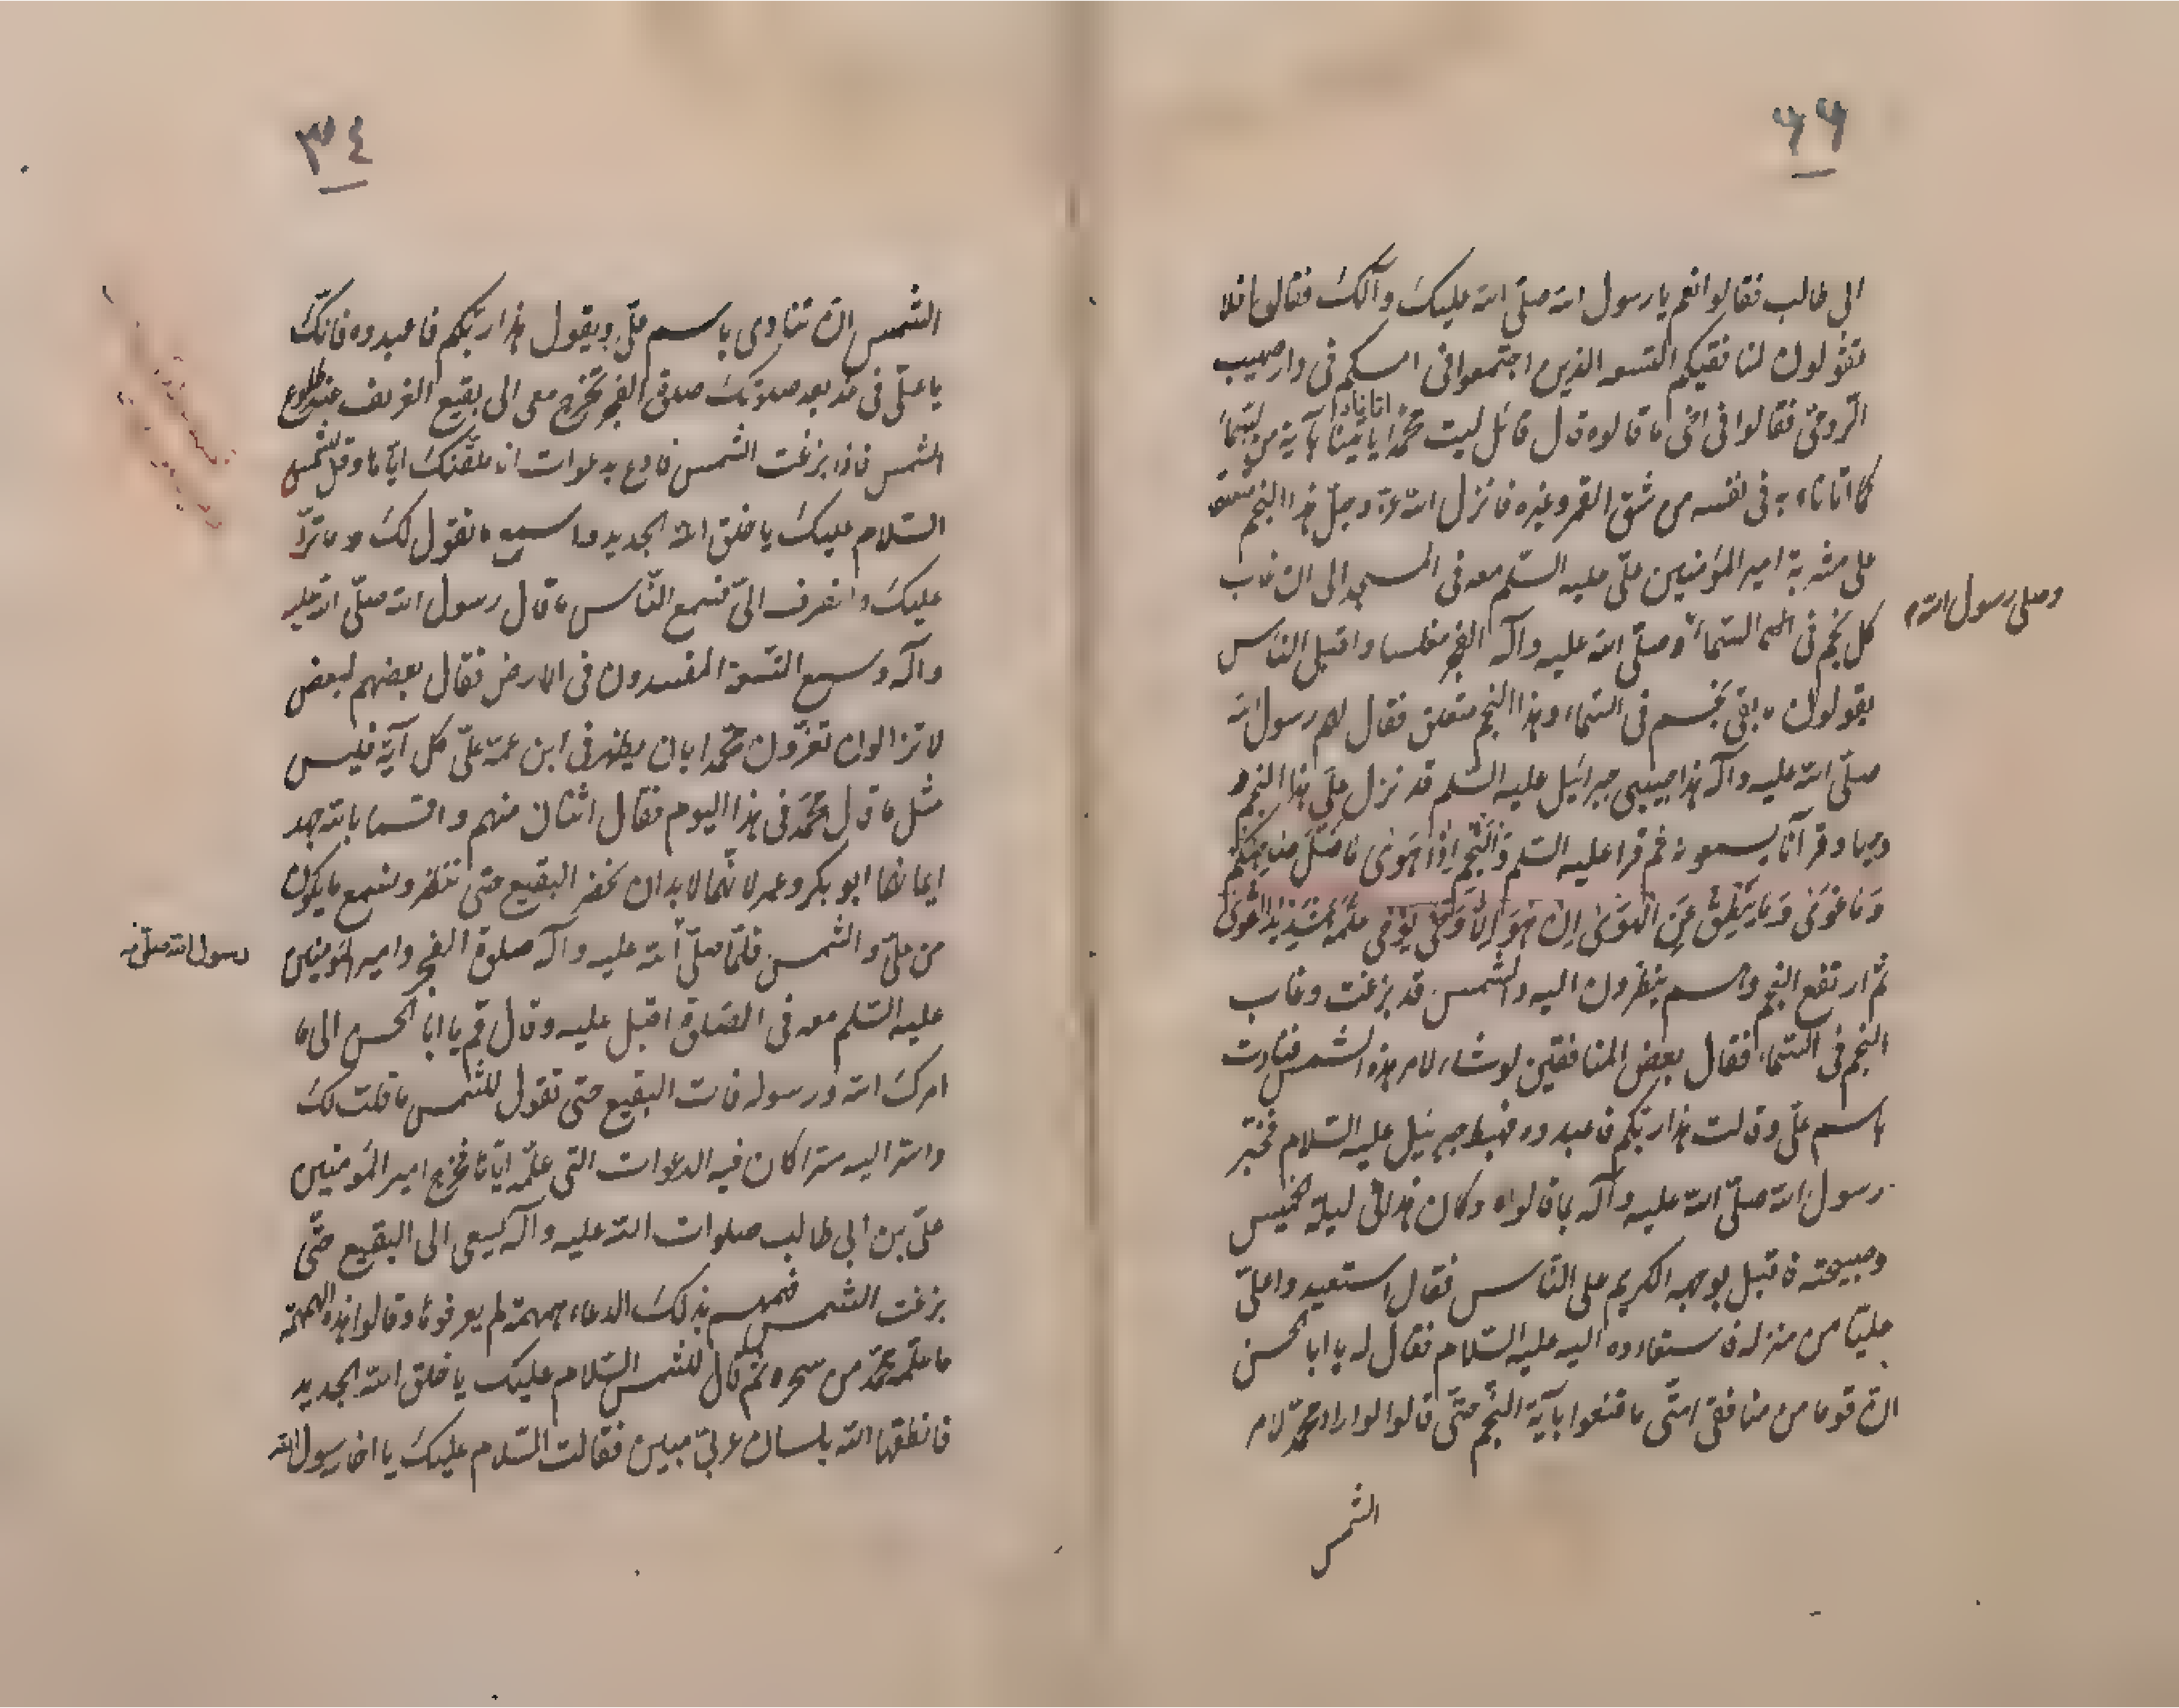 ٦٦
ابى طالب فقالوا نعم يا رسول الله صلّى الله عليك وآلك فقال افلا
تقولون لنا فقيكم التسعه الذين اجتمعوا فى امسكم فى دار صهيب
الرومىّ فقالوا فى اخى ما قالوه قال قائل ليت محمّدا ياتينا بآية من السّماء
اتانا
كما اتانا به فى نفسه من شق القمر وغيره فانزل الله عز وجلّ هذا النجم فتعلق
على مشربة امير المؤمنين علىّ عليه السّلم معه فى المسجد الى ان غاب
كل نجم فى السّماء وصلّى الله عليه وآله الفجر مغلسا واقبل النّاس
وصلى رسول الله
يقولون ما بقى نجم فى السّماء وهذا النجم متعلق فقال لهم رسول الله
صلّى الله عليه وآله هذا حبيبى جبرائيل عليه السّلم قد نزل علَى هذا النجم و
وحيا وقرآنا يسمعونه ثم قرا عليه السّلم وَالنَّجْمِ اِذٰا هَوىٰ مٰا ضَلَّ صٰاحِبُكُمْ
وَمٰا غَوىٰ وَمٰا يَنْطِقُ عَنِ الْهَوىٰ اِنْ هُوَ اِلّٰا وَحْىٌ يُوحىٰ عَلَّمَهُ شَديدُ الْقُوىٰ
ثم ارتفع النجم وهم ينظرون اليه والشمس قد بزغت وغاب
النجم فى السّماء فقال بعض المنافقين لو شاء لامر هذه الشمس فنادت
باسم علىّ وقالت هذا ربّكم فاعبدوه فهبط جبرئيل عليه السّلام فخبّر
رسول الله صلّى الله عليه وآله بما قالواه وكان هذا فى ليلة الخميس
وصبيحته فاقبل بوجهه الكريم على النّاس فقال استعيدوا علىّ
عليّا من منزله فاستعادوه اليه عليه السّلام فقال له يا ابا الحسن
انّ قوما من منافقى امّتى ما قنعوا بآية النّجم حتّى قالوا لو اراد محمّد لامر
الشمس
٣٤
الشمس ان تنادى باسم علىّ ويقول هذا ربّكم فاعبدوه فانّك
يا علىّ فى غد بعد صلوتك صلوة الفجر تخرج معى الى بقيع الغرقد عند طلوع
الشمس فاذا بزغت الشمس فادع بدعوات انا ملقّنك ايّاها وقل للشمس
السّلام عليك يا خلق الله الجديد واسمع ما تقول لك وما تردّ
عليك وانصرف الىّ فسمع النّاس ما قال رسول الله صلّى الله عليه
وآله وسمع التّسعة المفسدون فى الارض فقال بعضهم لبعض
لا تزالون تغرّون محمّدا بان يظهر فى ابن عمّه علىّ كل آية فليس
مثل ما قال محمّد فى هذا اليوم فقال اثنان منهم واقسما بالله جهد
ايمانهما ابو بكر وعمر لانّهما لابد ان نحضر البقيع حتى ننظر ونسمع ما يكون
من علىّ والشمس فلمّا صلّى الله عليه وآله صلوة الفجر وامير المؤمنين
رسول الله صلّى الله
عليه السّلم معه فى الصّلوة اقبل عليه وقال قم يا ابا الحسن الى ما
امرك الله ورسوله فات البقيع حتى تقول للشمس ما قلت لك
واسرّ اليه سرّا كان فيه الدعوات التى علّمه ايّاها فخرج امير المؤمنين
علىّ بن ابى طالب صلوات الله عليه وآله يسعى الى البقيع حتّى
بزغت الشمس فهمهم بذلك الدعاء همهمة لم يعرفوها وقالوا هذه الهمهمة
ما علّمه محمّد من سحره ثم قال للشمس السّلام عليك يا خلق الله الجديد
فانطقها الله بلسان عربىّ مبين فقالت السّلام عليك يا اخا رسول الله